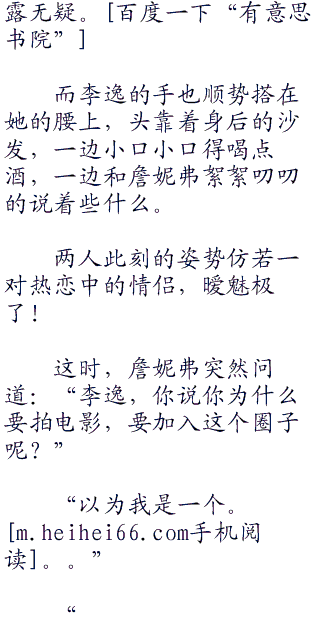 露无疑。[百度一下“有意思
书院”]
而李逸的手也顺势搭在
她的腰上，头靠着身后的沙
发，一边小口小口得喝点
酒，一边和詹妮弗絮絮叨叨
的说着些什么。
两人此刻的姿势仿若一
对热恋中的情侣，暧魅极
了！
这时，詹妮弗突然问
道：“李逸，你说你为什么
要拍电影，要加入这个圈子
呢？”
“以为我是一个。
[m.heihei66.com手机阅
读]。。”
“